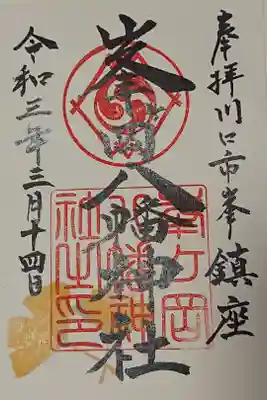 奉拝川口市峯鎮座
峯ヶ岡八幡神社
令和三年三月十四日
峯ケ岡
八幡神
社之印